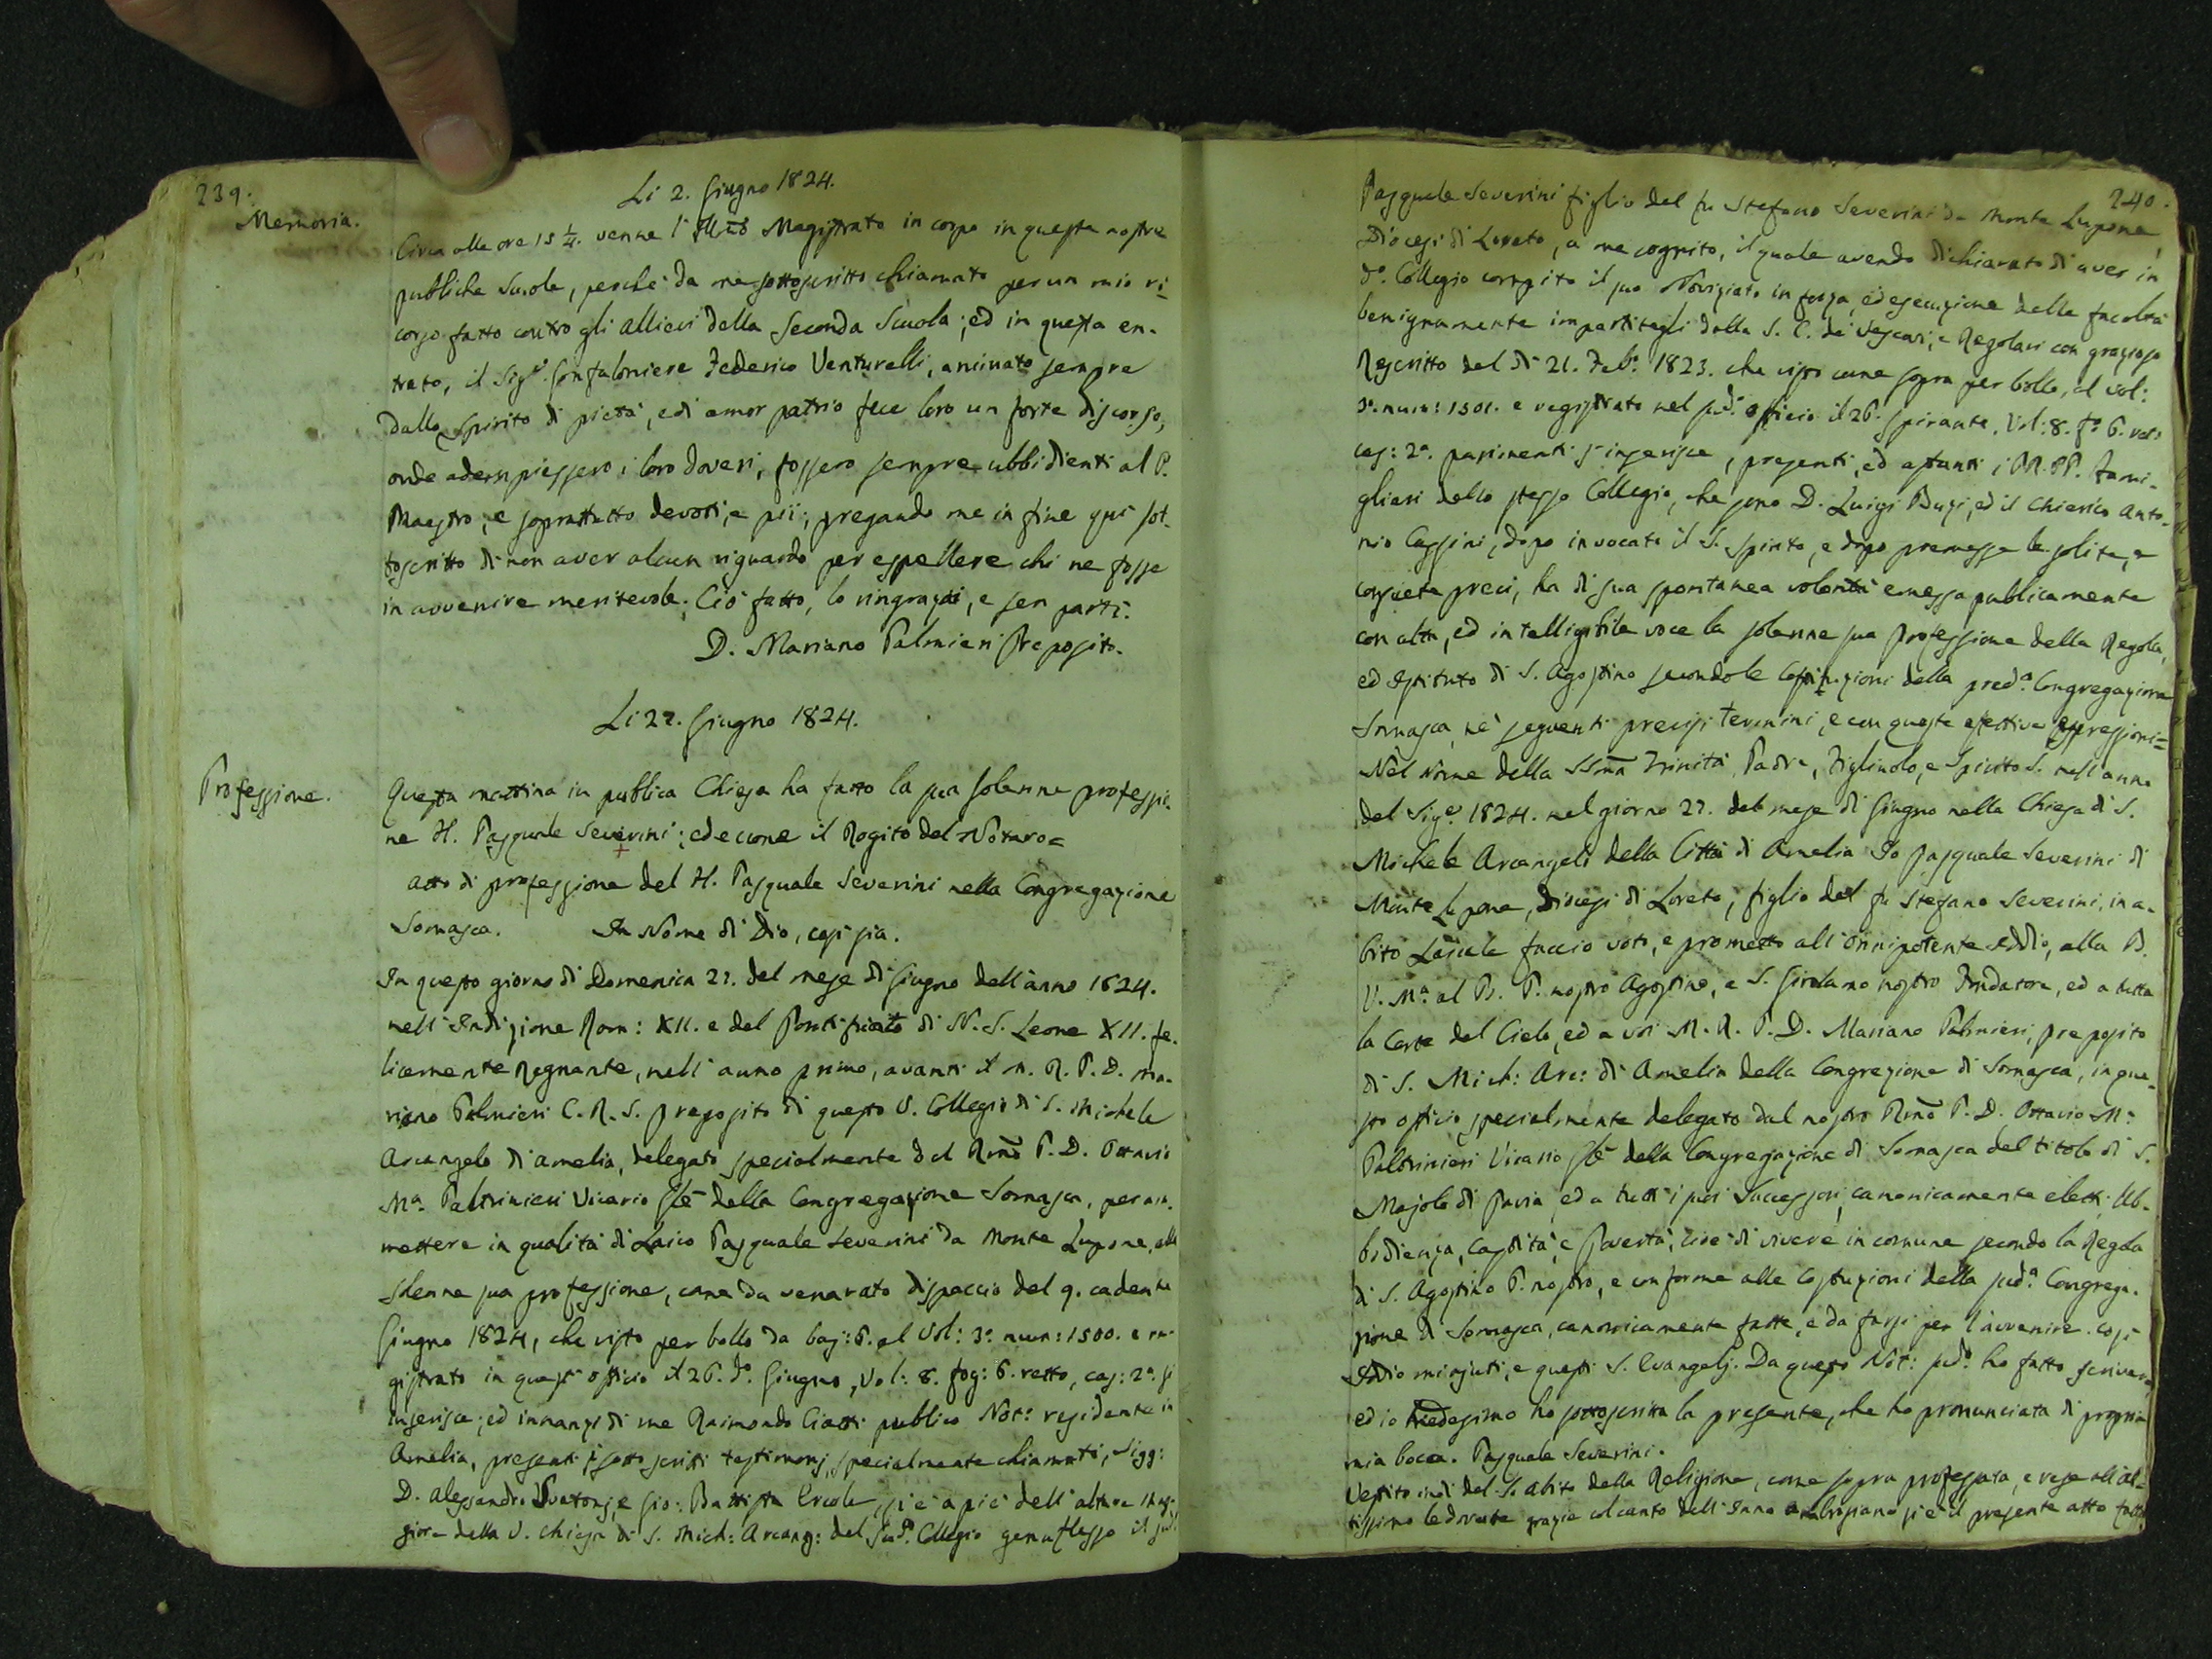 239.
Li 2. Giugno 1824.
Memoria.
Circa alle ore 15 1/4. venne l' Illmo Magistrato in corpo in queste nostre
pubbliche Scuole, perchè da me sottoscritto chiamato per un mio ri-
corso fatto contro gli allievi della Seconda Scuola; ed in questa en-
trato, il Sigr. Gonfaloniere Federico Venturelli, animato sempre
dallo Spirito di pietà, e di amor patrio fece loro un forte discorso,
onde adempiessero i loro doveri, fossero sempre ubbidienti al P.
Maestro, e soprattutto devoti, e pii; pregando me in fine qui sot-
toscritto di non aver alcun riguardo per espellere chi ne fosse
in avvenire meritevole. Ciò fatto, lo ringraziai, e sen partì.
D. Mariano Palmieri Preposito.
Li 27. Giugno 1824.
Professione.
Questa mattina in pubblica Chiesa ha fatto la sua solenne professio-
ne H. Pasquale Severini; ed eccone il Rogito del Notaro=
Atto di professione del H. Pasquale Severini nella Congregazione
Somasca. In Nome di Dio, così sia.
In questo giorno di Domenica 27. del mese di Giugno dell'anno 1824.
nell'Indizione Rom: XII. e del Pontificato di N. S. Leone XII. fe-
licemente Regnante, nell'anno primo, avanti il M. R. P. D. Ma-
riano Palmieri C. R. S. preposito di questo V. Collegio di S. Michele
Arcangelo di Amelia, delegato specialmente dal Rmo P. D. Ottavio
Ma. Paltrinieri Vicario Gle della Congregazione Somasca, per am-
mettere in qualità di Laico Pasquale Severini da Monte Lupone, alla
solenne sua professione, come da venerato dispaccio del 9. cadente
Giugno 1824, che visto per bollo da baj: 6. al Vol: 3o. num: 1500. e re-
gistrato in quest'officio il 26. do. Giugno, Vol: 8. fog: 6. retto, cas: 2a. si
inserisce; ed innanzi di me Raimondo Ciatti publico Not: residente in
Amelia, presenti i sottoscritti testimonj specialmente chiamati, Sigg:
D. Alessandro e Gio: Battista Ercole, si è a piè dell'altare mag-
giore della V. Chiesa di S. Mich: Arcang: del sudo. Collegio genuflesso il sudo.
240.
Pasquale Severini figlio del fu Stefano Severini da Monte Lupone,
Diocesi di Loreto, a me cognito, il quale avendo dichiarato di aver in
do. Collegio compito il suo Noviziato in forza, ed esecuzione della facoltà
benignamente impartitagli dalla S. C. de' Vescovi, e Regolari con grazioso
Rescritto del dì 21. Febo. 1823. che visto come sopra per bollo, al vol:
3o. num: 1501. e registrato nel sudo. officio il 26. spirante, Vol: 8. fo. 6. reto
cas: 2a. parimenti s'inserisce, presenti, ed astanti i RR. PP. fami-
gliari dello stesso Collegio, che sono D. Luigi Buzi, ed il Chierico Anto-
nio Cassini, dopo invocato il S. Spirito, e dopo premesse le solite, e
consuete preci, ha di sua spontanea volontà emessa publicamente
con alta, ed intelligibile voce la solenne sua professione della Regola,
ed Istituto di S. Agostino secondo le Costituzioni della preda. Congregazione
Somasca, ne' seguenti precisi termini, e con queste espressioni=
Nel Nome della SSma Trinità, Padre, Figliuolo, e Spirito S. nell'anno
del Sige. 1824. nel giorno 27. del mese di Giugno nella Chiesa di S.
Michele Arcangelo della Città di Amelia Io Pasquale Severini di
Monte Lupone, Diocesi di Loreto, figlio del fu Stefano Severini, in a-
bito Laicale faccio voto, e prometto all'Onnipotente Iddio, alla B.
V. Ma. al B. P. nostro Agostino, e S. Girolamo nostro Fondatore, ed a tutta
la Corte del Cielo, ed a voi M. R. P. D. Mariano Palmieri, preposito
di S. Mich: Arc: di Amelia della Congregazione di Somasca, in que-
sto officio specialmente delegato dal nostro Rmo P. D. Ottavio Ma.
Paltrinieri Vicario Gle della Congregazione di Somasca del titolo di S.
Majolo di Pavia, ed a tutti i suoi Successori canonicamente eletti. Ub-
bidienza, Castità, e Povertà, cioè di vivere in comune secondo la Regola
di S. Agostino P. nostro, e conforme alle Costituzioni della suda. Congrega-
zione di Somasca, canonicamente fatte, e da farsi per l'avvenire. Così
Iddio mi ajuti, e questi S. Evangelj. Da questo Not: sudo. ho fatto scrivere
ed io medesimo ho sottoscritta la presente, che ho pronunciata di propria
mia bocca. Pasquale Severini.
Vestito indi del S. abito della Religione, come sopra professata, e rese all'Al-
tissimo le dovute grazie col canto dell'Inno Ambrosiano si è il presente atto fatto